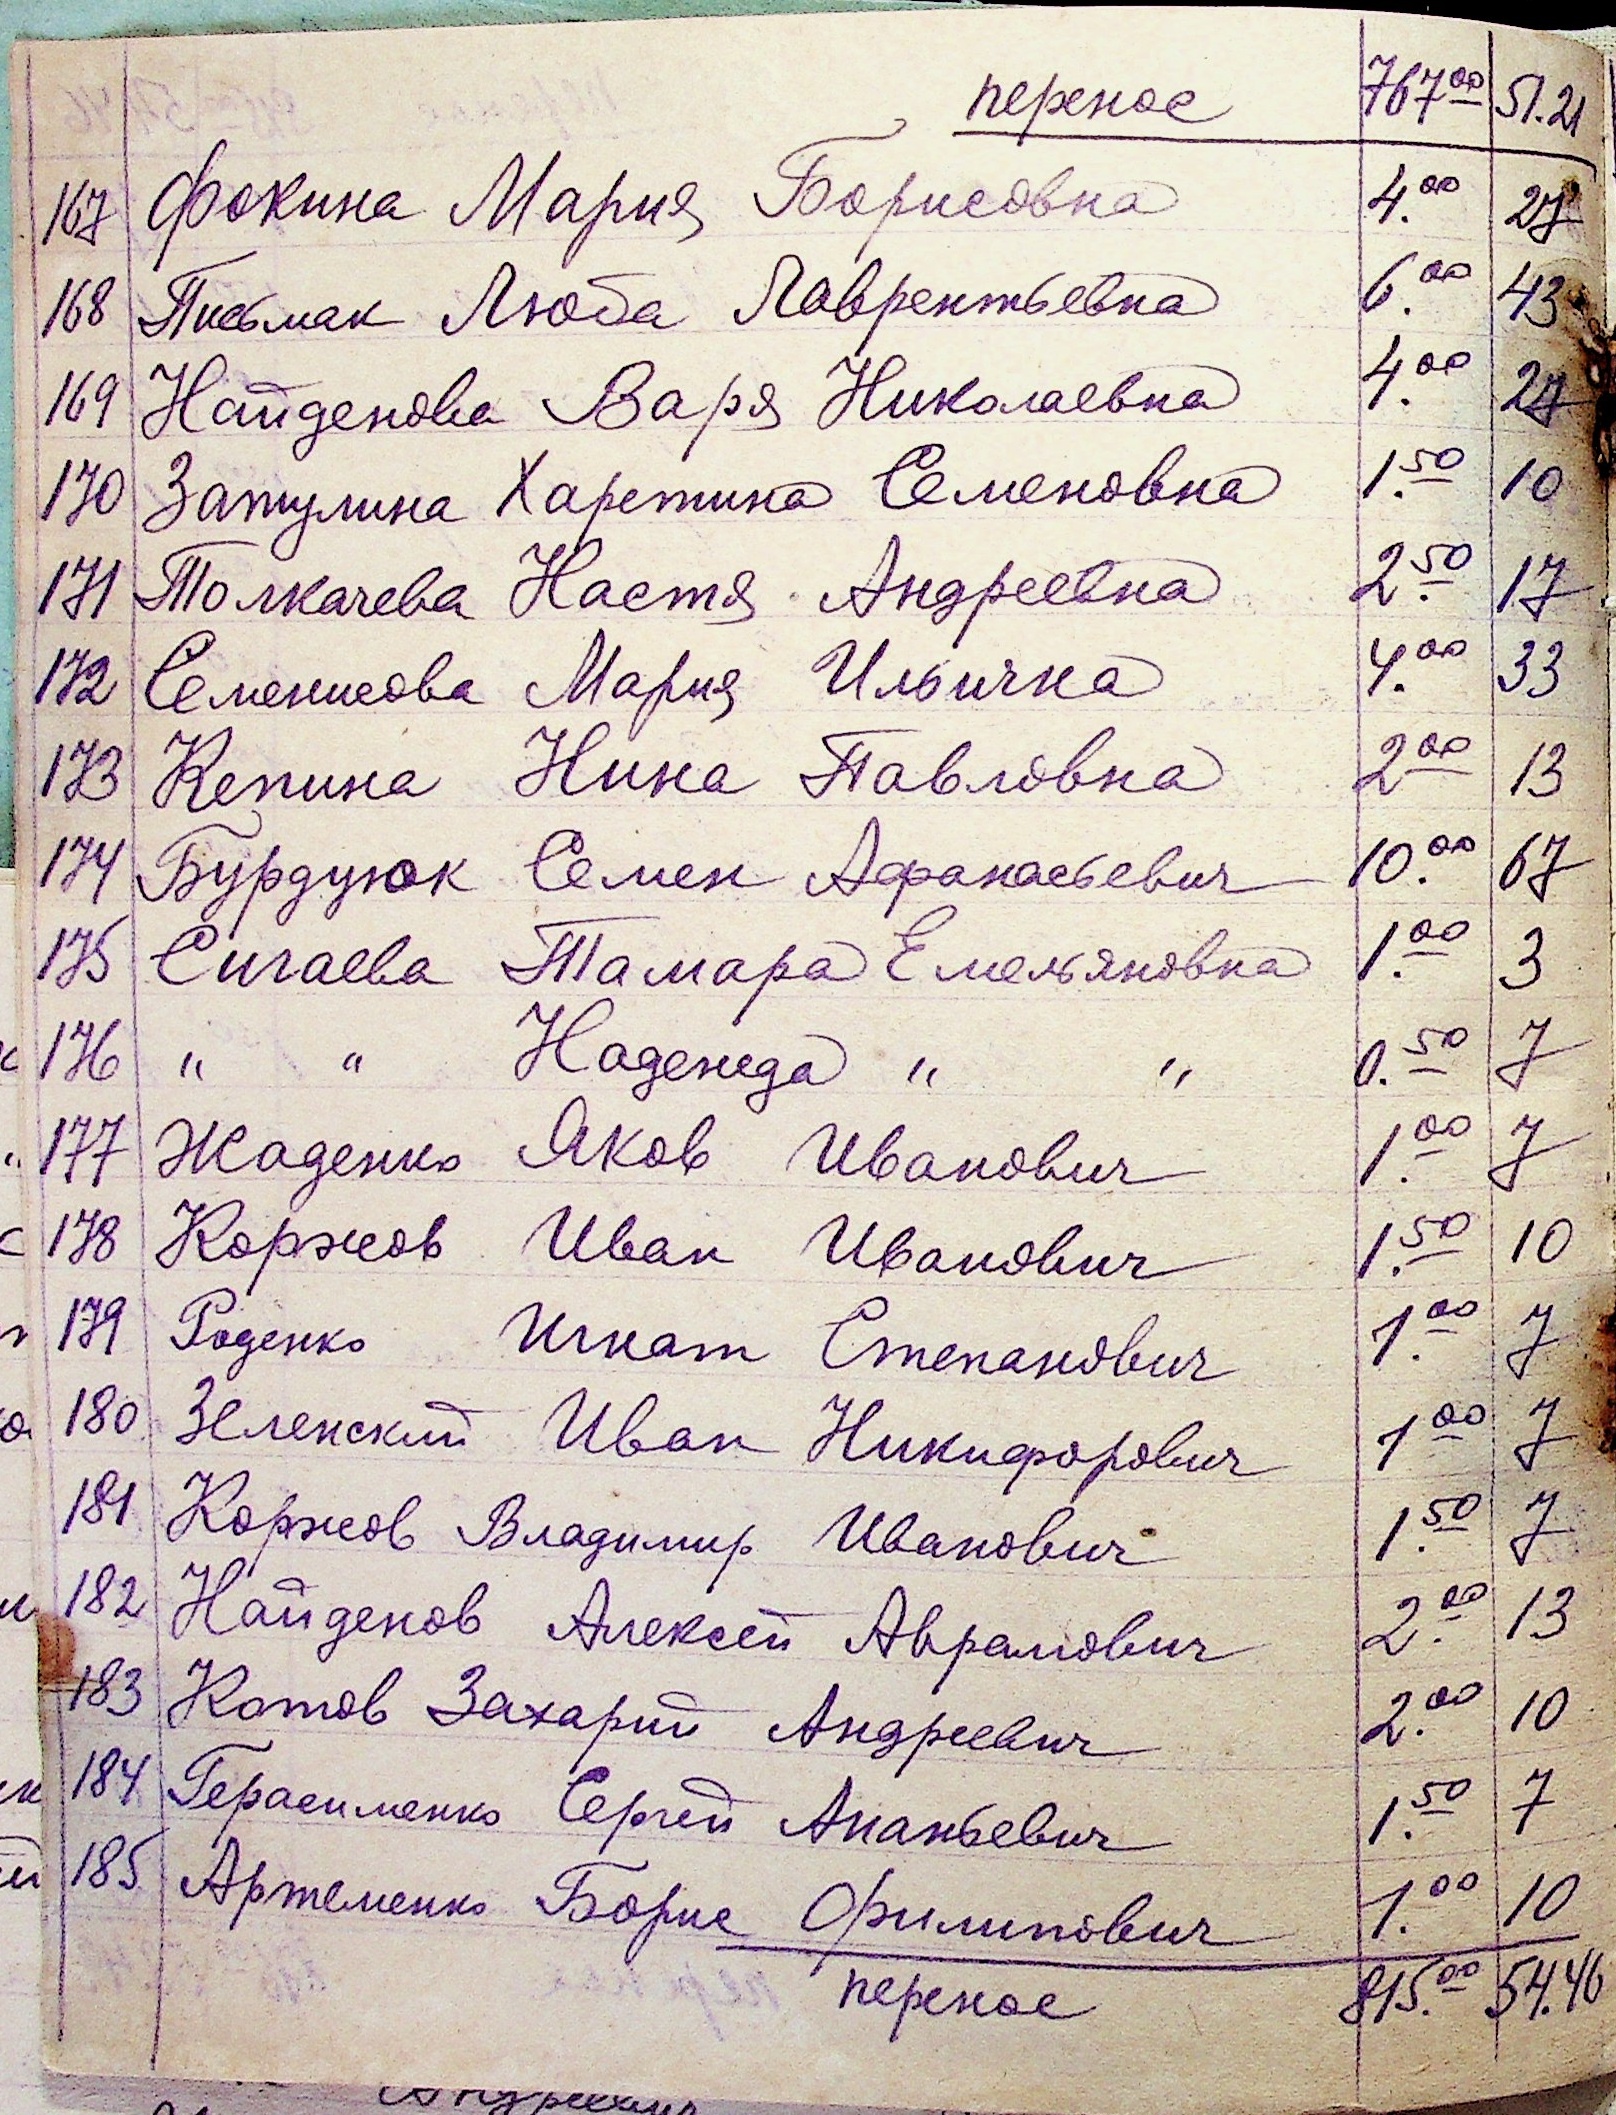 перенос 767.00 51.21
167 Фокина Мария Борисовна 4.00 27
168 Письмак Люба Лаврентьевна 6.00 43
169 Найденова Варя Николаевна 4.00 27
170 Затулина Харетина Семеновна 1.50 10
171 Толкачева Настя Андреевна 2.50 17
172 Семенисова Мария Ильична 4.00 33
173 Кепина Нина Павловна 2.00 13
174 Бурдуюк Семен Афанасьевич 10.00 67
175 Сигаева Тамара Емельяновна 1.00 3
176 " " Надежда " " 0.50 7
177 Жаденко Яков Иванович 1.00 7
178 Коржов Иван Иванович 1.50 10
179 Роденко Игнат Степанович 1.00 7
180 Зеленский Иван Никифорович 1.00 7
181 Коржов Владимир Иванович 1.50 7
182 Найденов Алексей Аврамович 2.00 13
183 Котов Захарий Андреевич 2.00 10
184 Герасименко Сергей Ананьевич 1.50 7
185 Артеменко Борис Филипович 1.00 10
перенос 815.00 54.46